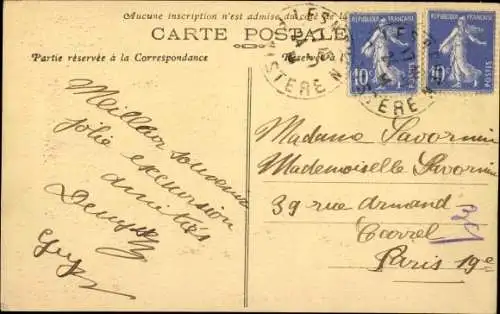 Aucune inscription n'est admise du côté de la
CARTE POSTALE
Partie réservée à la Correspondance
Réservé à
RÉPUBLIQUE FRANÇAISE
10c
POSTES
RÉPUBLIQUE FRANÇAISE
10c
POSTES
FINISTÈRE
Meilleur souvenir
jolie excursion
amitiés
Guy
Madame Savornin
Mademoiselle Savornin
39 rue Armand
Carrel
Paris 19e